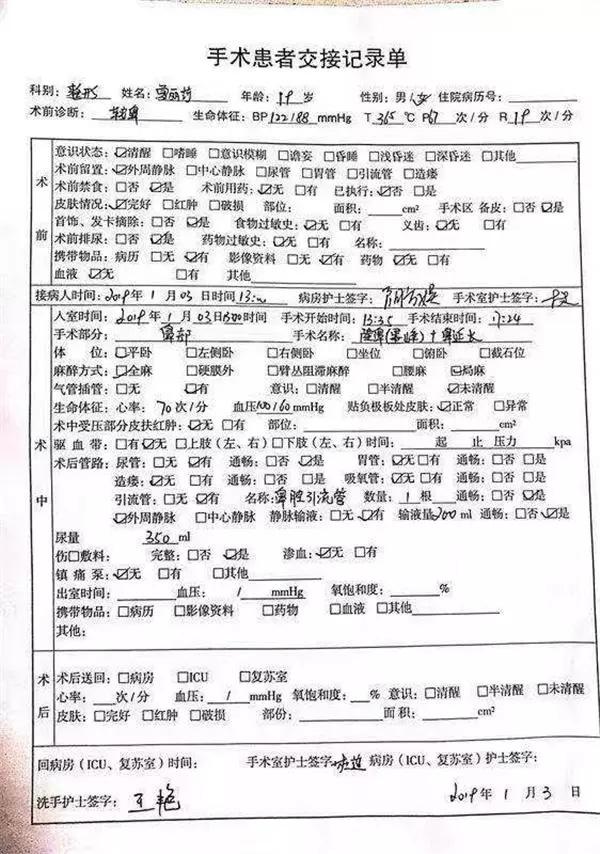 手术患者交接记录单
科别: 整形 姓名: 年龄: 19 岁 性别: 男/女 住院病历号:
术前诊断: 生命体征: BP 122/88 mmHg T 36.5 ℃ P 67 次/分 R 19 次/分
术前
意识状态: ☑清醒 □嗜睡 □意识模糊 □谵妄 □昏睡 □浅昏迷 □深昏迷 □其他
术前留置: ☑外周静脉 □中心静脉 □尿管 □胃管 □引流管 □造瘘
术前禁食: □否 ☑是 术前用药: ☑无 □有 已执行: □否 ☑是
皮肤情况: ☑完好 □红肿 □破损 部位: 面积: cm² 手术区 备皮: □否 ☑是
首饰、发卡摘除: □否 ☑是 食物过敏史: ☑无 □有 义齿: ☑无 □有
术前排尿: □否 ☑是 药物过敏史: ☑无 □有 名称:
携带物品: 病历 □无 ☑有 影像资料 □无 ☑有 药物 ☑无 □有
血液 ☑无 □有 其他
接病人时间: 2019 年 1 月 03 日时间 病房护士签字: 手术室护士签字:
术中
入室时间: 2019 年 1 月 03 日 1300 时间 手术开始时间: 13:35 手术结束时间: 17:24
手术部分: 鼻部 手术名称: 鼻延长
体 位: ☑平卧 □左侧卧 □右侧卧 □坐位 □俯卧 □截石位
麻醉方式: ☑全麻 □硬膜外 □臂丛阻滞麻醉 □腰麻 局麻
气管插管: □无 ☑有 意识: □清醒 □半清醒 ☑未清醒
生命体征: 心率: 70 次/分 血压: 100/60 mmHg 贴负极板处皮肤: ☑正常 □异常
术中受压部分皮扶红肿: ☑无 □有 部位: 面积: cm²
驱 血 带: □有 ☑无 □上肢(左、右) □下肢(左、右) 时间: 起 止 压力 kpa
术后管路: 尿管: □无 ☑有 通畅: □否 ☑是 胃管: ☑无 □有 通畅: □否 □是
造瘘: ☑无 □有 通畅: □否 □是 吸氧管: ☑无 □有 通畅: □否 □是
引流管: □无 ☑有 名称: 鼻腔引流管 数量: 1 根 通畅: □否 ☑是
☑外周静脉 □中心静脉 静脉输液: □无 ☑有 输液量: ml 通畅: □否 ☑是
尿量 350 ml
伤□敷料: 完整: □否 ☑是 渗血: ☑无 □有
镇 痛 泵: ☑无 □有 □其他
出室时间: 血压: / mmHg 氧饱和度: %
携带物品: □病历 □影像资料 □药物 □血液 □其他
其他:
术后
术后送回: □病房 □ICU □复苏室
心率: 次/分 血压: / mmHg 氧饱和度: % 意识: □清醒 □半清醒 □未清醒
皮肤: □完好 □红肿 □破损 部份: 面 积: cm²
回病房 (ICU、复苏室) 时间: 手术室护士签字: 病房 (ICU、复苏室) 护士签字:
洗手护士签字: 王艳 2019 年 1 月 3 日